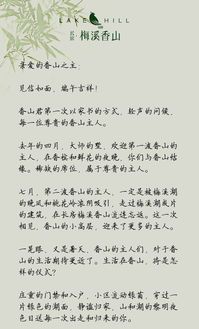 LAKE HILL
梅溪香山
亲爱的香山之主：
见信如面，端午吉祥！
香山君第一次以家书的方式，轻声的问候，
每一位尊贵的香山主人。
去年的四月，大师的墅，欢迎第一波香山的
主人，在香槟和鲜花的夜晚，你们与香山结
缘。稀缺的席位，属于尊贵的主人。
七月，第一波香山的主人，一定是被梅溪湖
的晚风和桃花岭凉阴吸引，走过梅溪湖夹片
的建筑，在长岛梅溪香山流连忘返。这一次
相见，香山的小高层，迎来了更多的主人。
一晃眼，又是春天，香山的主人们，对于香山
的生活期待更近了。生活在香山，将是怎
样的仪式？
庄重的门楼和入户，小区流动绿茵，穿过一
片绿色的湖面，静谧归家，山和湖的憨明夜
色日送每一次出走和归来的你。